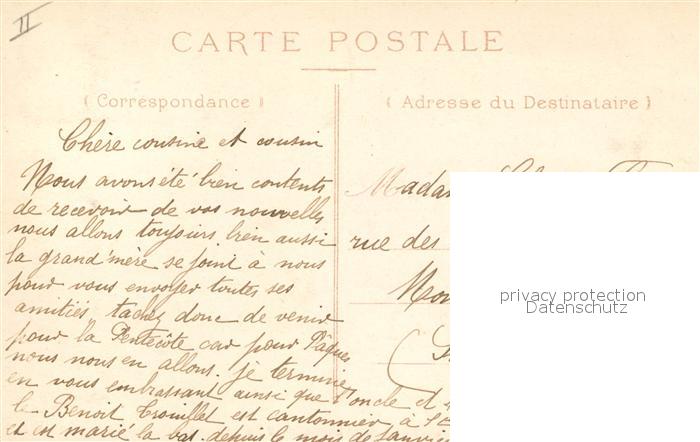 II
CARTE POSTALE
( Correspondance )
( Adresse du Destinataire )
Chère cousine et cousin
Nous avons été bien contents
de recevoir de vos nouvelles
nous allons toujours bien aussi
la grand'mère se joint à nous
pour vous envoyer toutes ses
amitiés, tachez donc de venir
pour la Pentecôte car pour Pâques
nous nous en allons. je termine
en vous embrassant ainsi que l'oncle et
le Benoit Trouillet est cantonnier, à
et est marié la bas. depuis le mois de Janvier
rue des
privacy protection
Datenschutz